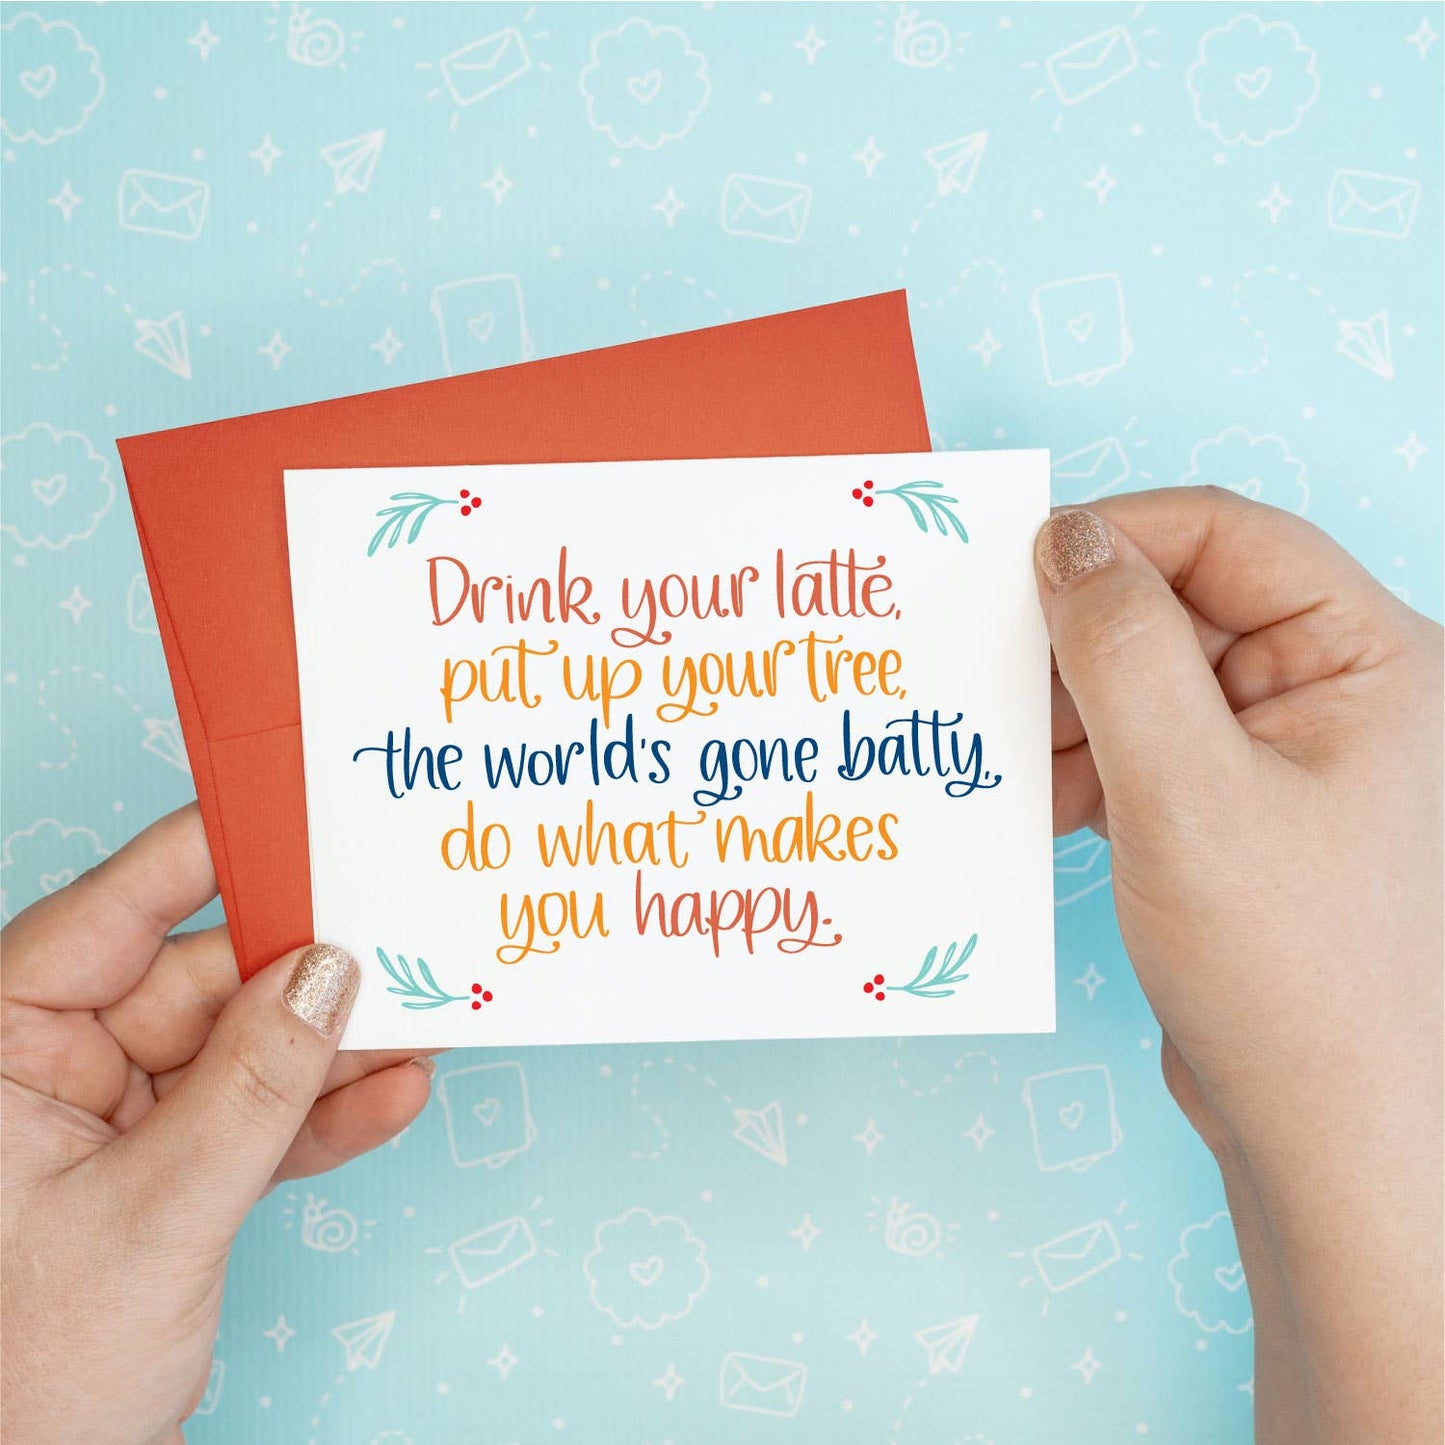 Drink your latte,
put up your tree,
the world's gone batty,
do what makes
you happy.